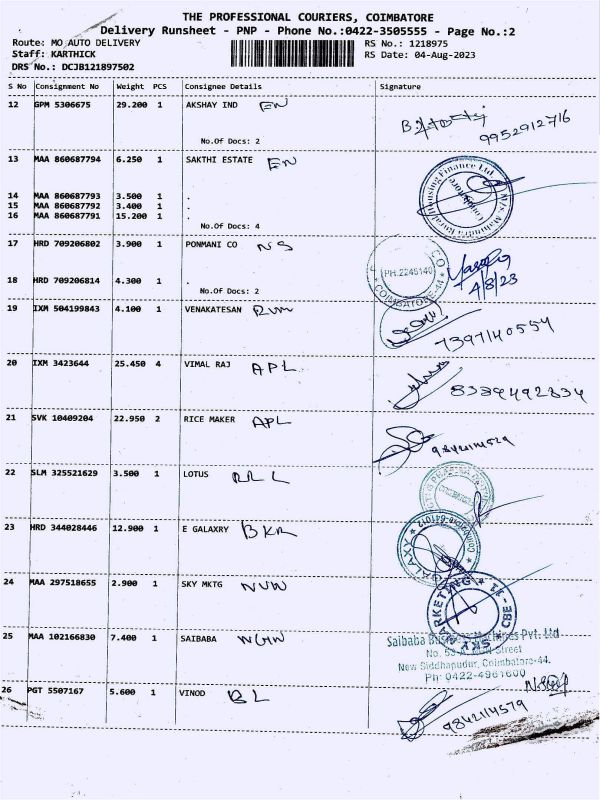 THE PROFESSIONAL COURIERS, COIMBATORE
Delivery Runsheet - PNP - Phone No.:0422-3505555 - Page No.:2
Route: MO AUTO DELIVERY
Staff: KARTHICK
DRS No.: DCJB121897502
RS No.: 1218975
RS Date: 04-Aug-2023
S No Consignment No Weight PCS Consignee Details Signature
12 GPM 5306675 29.200 1 AKSHAY IND EN
9952912716
No.Of Docs: 2
13 MAA 860687794 6.250 1 SAKTHI ESTATE EN
14 MAA 860687793 3.500 1 .
15 MAA 860687792 3.400 1 .
16 MAA 860687791 15.200 1 .
No.Of Docs: 4
17 HRD 709206802 3.900 1 PONMANI CO NS
PH:2246140
COIMBATORE-44
4/8/23
18 HRD 709206814 4.300 1 .
No.Of Docs: 2
19 IXM 504199843 4.100 1 VENAKATESAN
7397140554
20 IXM 3423644 25.450 4 VIMAL RAJ APL
21 SVK 10409204 22.950 2 RICE MAKER APL
22 SLM 325521629 3.500 1 LOTUS
23 HRD 344028446 12.900 1 E GALAXRY BKR
24 MAA 297518655 2.900 1 SKY MKTG
SKY MARKETING
25 MAA 102166830 7.400 1 SAIBABA
Saibaba Business Machines Pvt. Ltd
New Siddhapudur, Coimbatore-44.
Ph: 0422-4961600
26 PGT 5507167 5.600 1 VINOD BL
9842114579